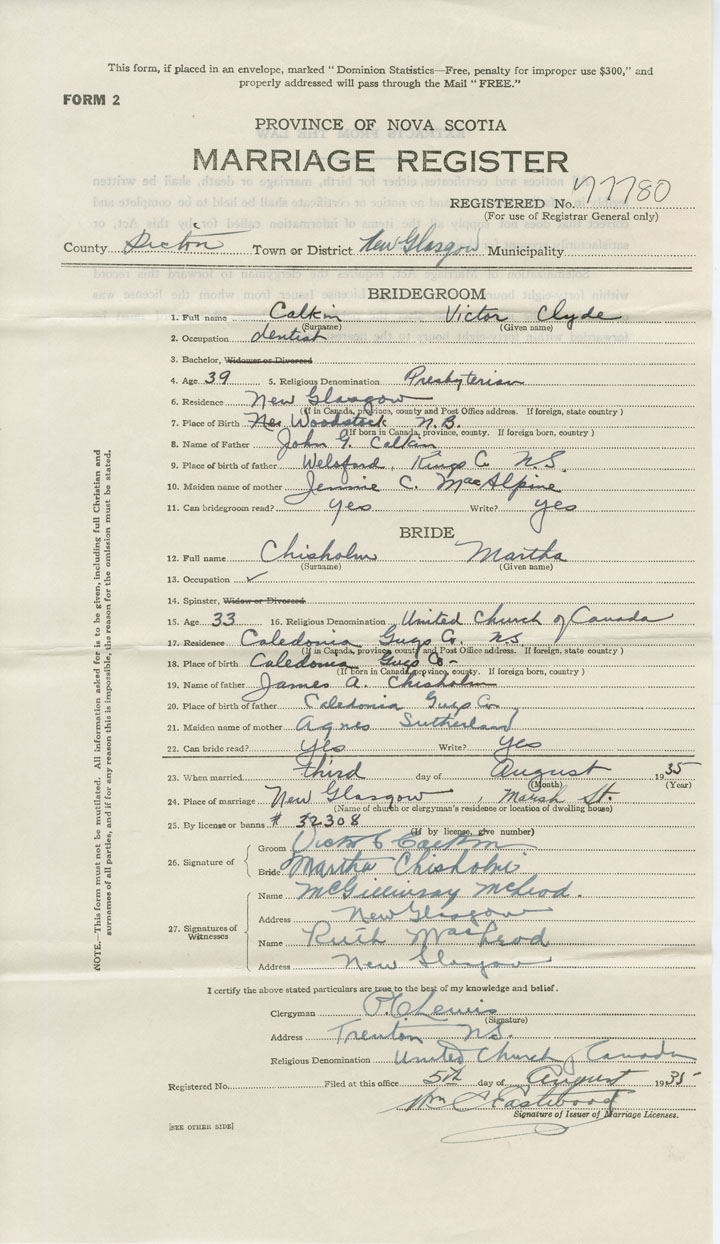 This form, if placed in an envelope, marked "Dominion Statistics—Free, penalty for improper use $300," and
properly addressed will pass through the Mail "FREE."
FORM 2
PROVINCE OF NOVA SCOTIA
MARRIAGE REGISTER
REGISTERED No. 77780
(For use of Registrar General only)
County Pictou Town or District New Glasgow Municipality
BRIDEGROOM
1. Full name Calkin Victor Clyde
(Surname) (Given name)
2. Occupation dentist
3. Bachelor, Widower or Divorced
4. Age 39 5. Religious Denomination Presbyterian
6. Residence New Glasgow
(If in Canada, province, county and Post Office address. If foreign, state country)
7. Place of Birth Woodstock N.B.
(If born in Canada, province, county. If foreign born, country)
8. Name of Father John G. Calkin
9. Place of birth of father Welsford, Kings Co N.S.
10. Maiden name of mother Jennie C. MacAlpine
11. Can bridegroom read? yes Write? yes
BRIDE
12. Full name Chisholm Martha
(Surname) (Given name)
13. Occupation ✓
14. Spinster, Widow or Divorced
15. Age 33 16. Religious Denomination United Church of Canada
17. Residence Caledonia Guys Co. N.S
(If in Canada, province, county and Post Office address. If foreign, state country)
18. Place of birth Caledonia Guys Co-
(If born in Canada, province, county. If foreign born, country)
19. Name of father James A. Chisholm
20. Place of birth of father Caledonia Guys Co.
21. Maiden name of mother Agnes Sutherland
22. Can bride read? yes Write? yes
23. When married third day of August 1935
(Month) (Year)
24. Place of marriage New Glasgow, Marsh St.
(Name of church or clergyman's residence or location of dwelling house)
25. By license or banns # 32308
(If by license, give number)
26. Signature of
Groom Victor C Calkin
Bride Martha Chisholm
27. Signatures of Witnesses
Name McGillivray McLeod.
Address New Glasgow
Name Ruth MacLeod
Address New Glasgow
I certify the above stated particulars are true to the best of my knowledge and belief.
Clergyman Lewis
(Signature)
Address Trenton N.S.
Religious Denomination United Church of Canada
Registered No. Filed at this office 5th day of August 1935
Wm C Eastwood
Signature of Issuer of Marriage Licenses.
[SEE OTHER SIDE]
NOTE.—This form must not be mutilated. All information asked for is to be given, including full Christian and
surnames of all parties, and if for any reason this is impossible, the reason for the omission must be stated.